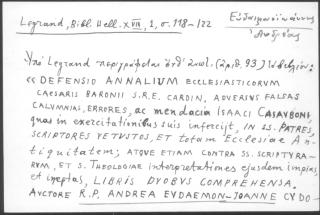 Legrand, Bibl. Hell. XVII, 1, σ. 118-122
Εὐδαιμονοϊωάννης
Ἀνδρέας
Legrand περιγράφεται ἀπ' (ἀριθ. 93)
« DEFENSIO ANNALIUM ECCLESIASTICORUM
CAESARIS BARONII S.R.E. CARDIN, ADVERSUS FALSAS
CALUMNIAS, ERRORES, ac mendacia ISAACI CASAUBONI,
quas in exercitationibus suis infercijt, IN SS. PATRES,
SCRIPTORES VETUSTOS, ET totam Ecclesiae An-
tiquitatem; ATQUE ETIAM CONTRA SS. SCRIPTURA-
RUM, ET S. THEOLOGIAE interpretationes ejusdem impias,
et ineptas, LIBRIS DUOBUS COMPREHENSA.
AUCTORE R.P. ANDREA EUDAEMON-JOANNE CYDO-